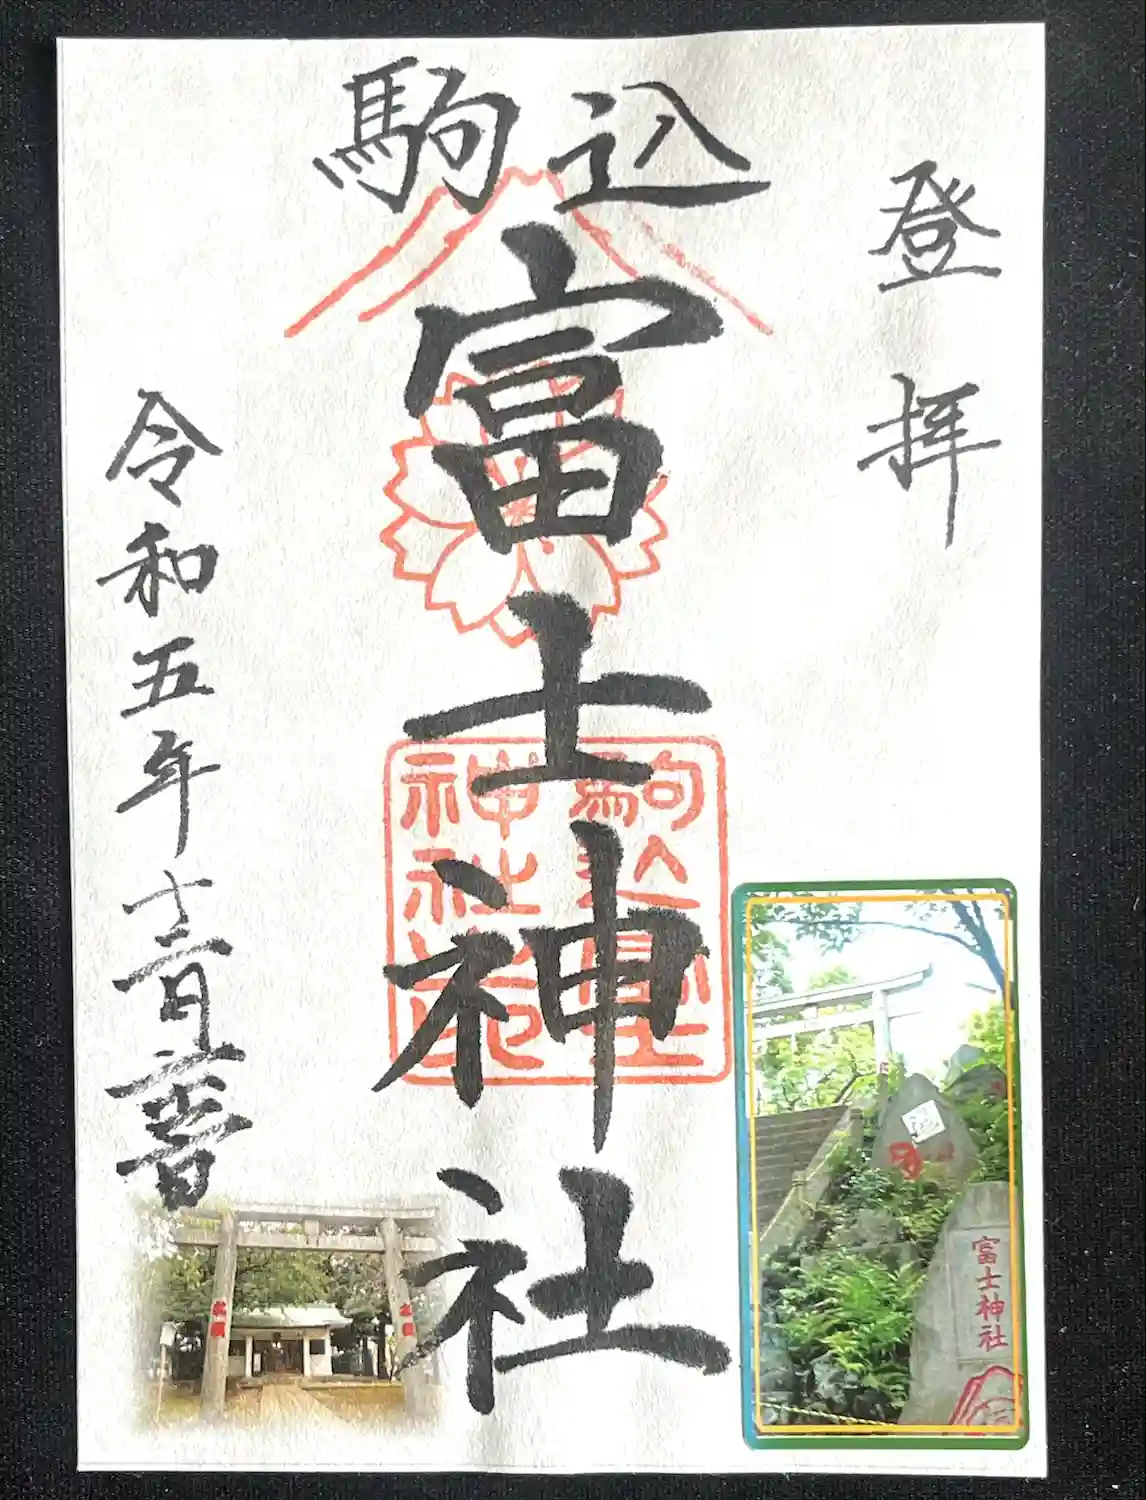 登拝
駒込
富士神社
駒込富士
神社之印
令和五年十二月
富士神社